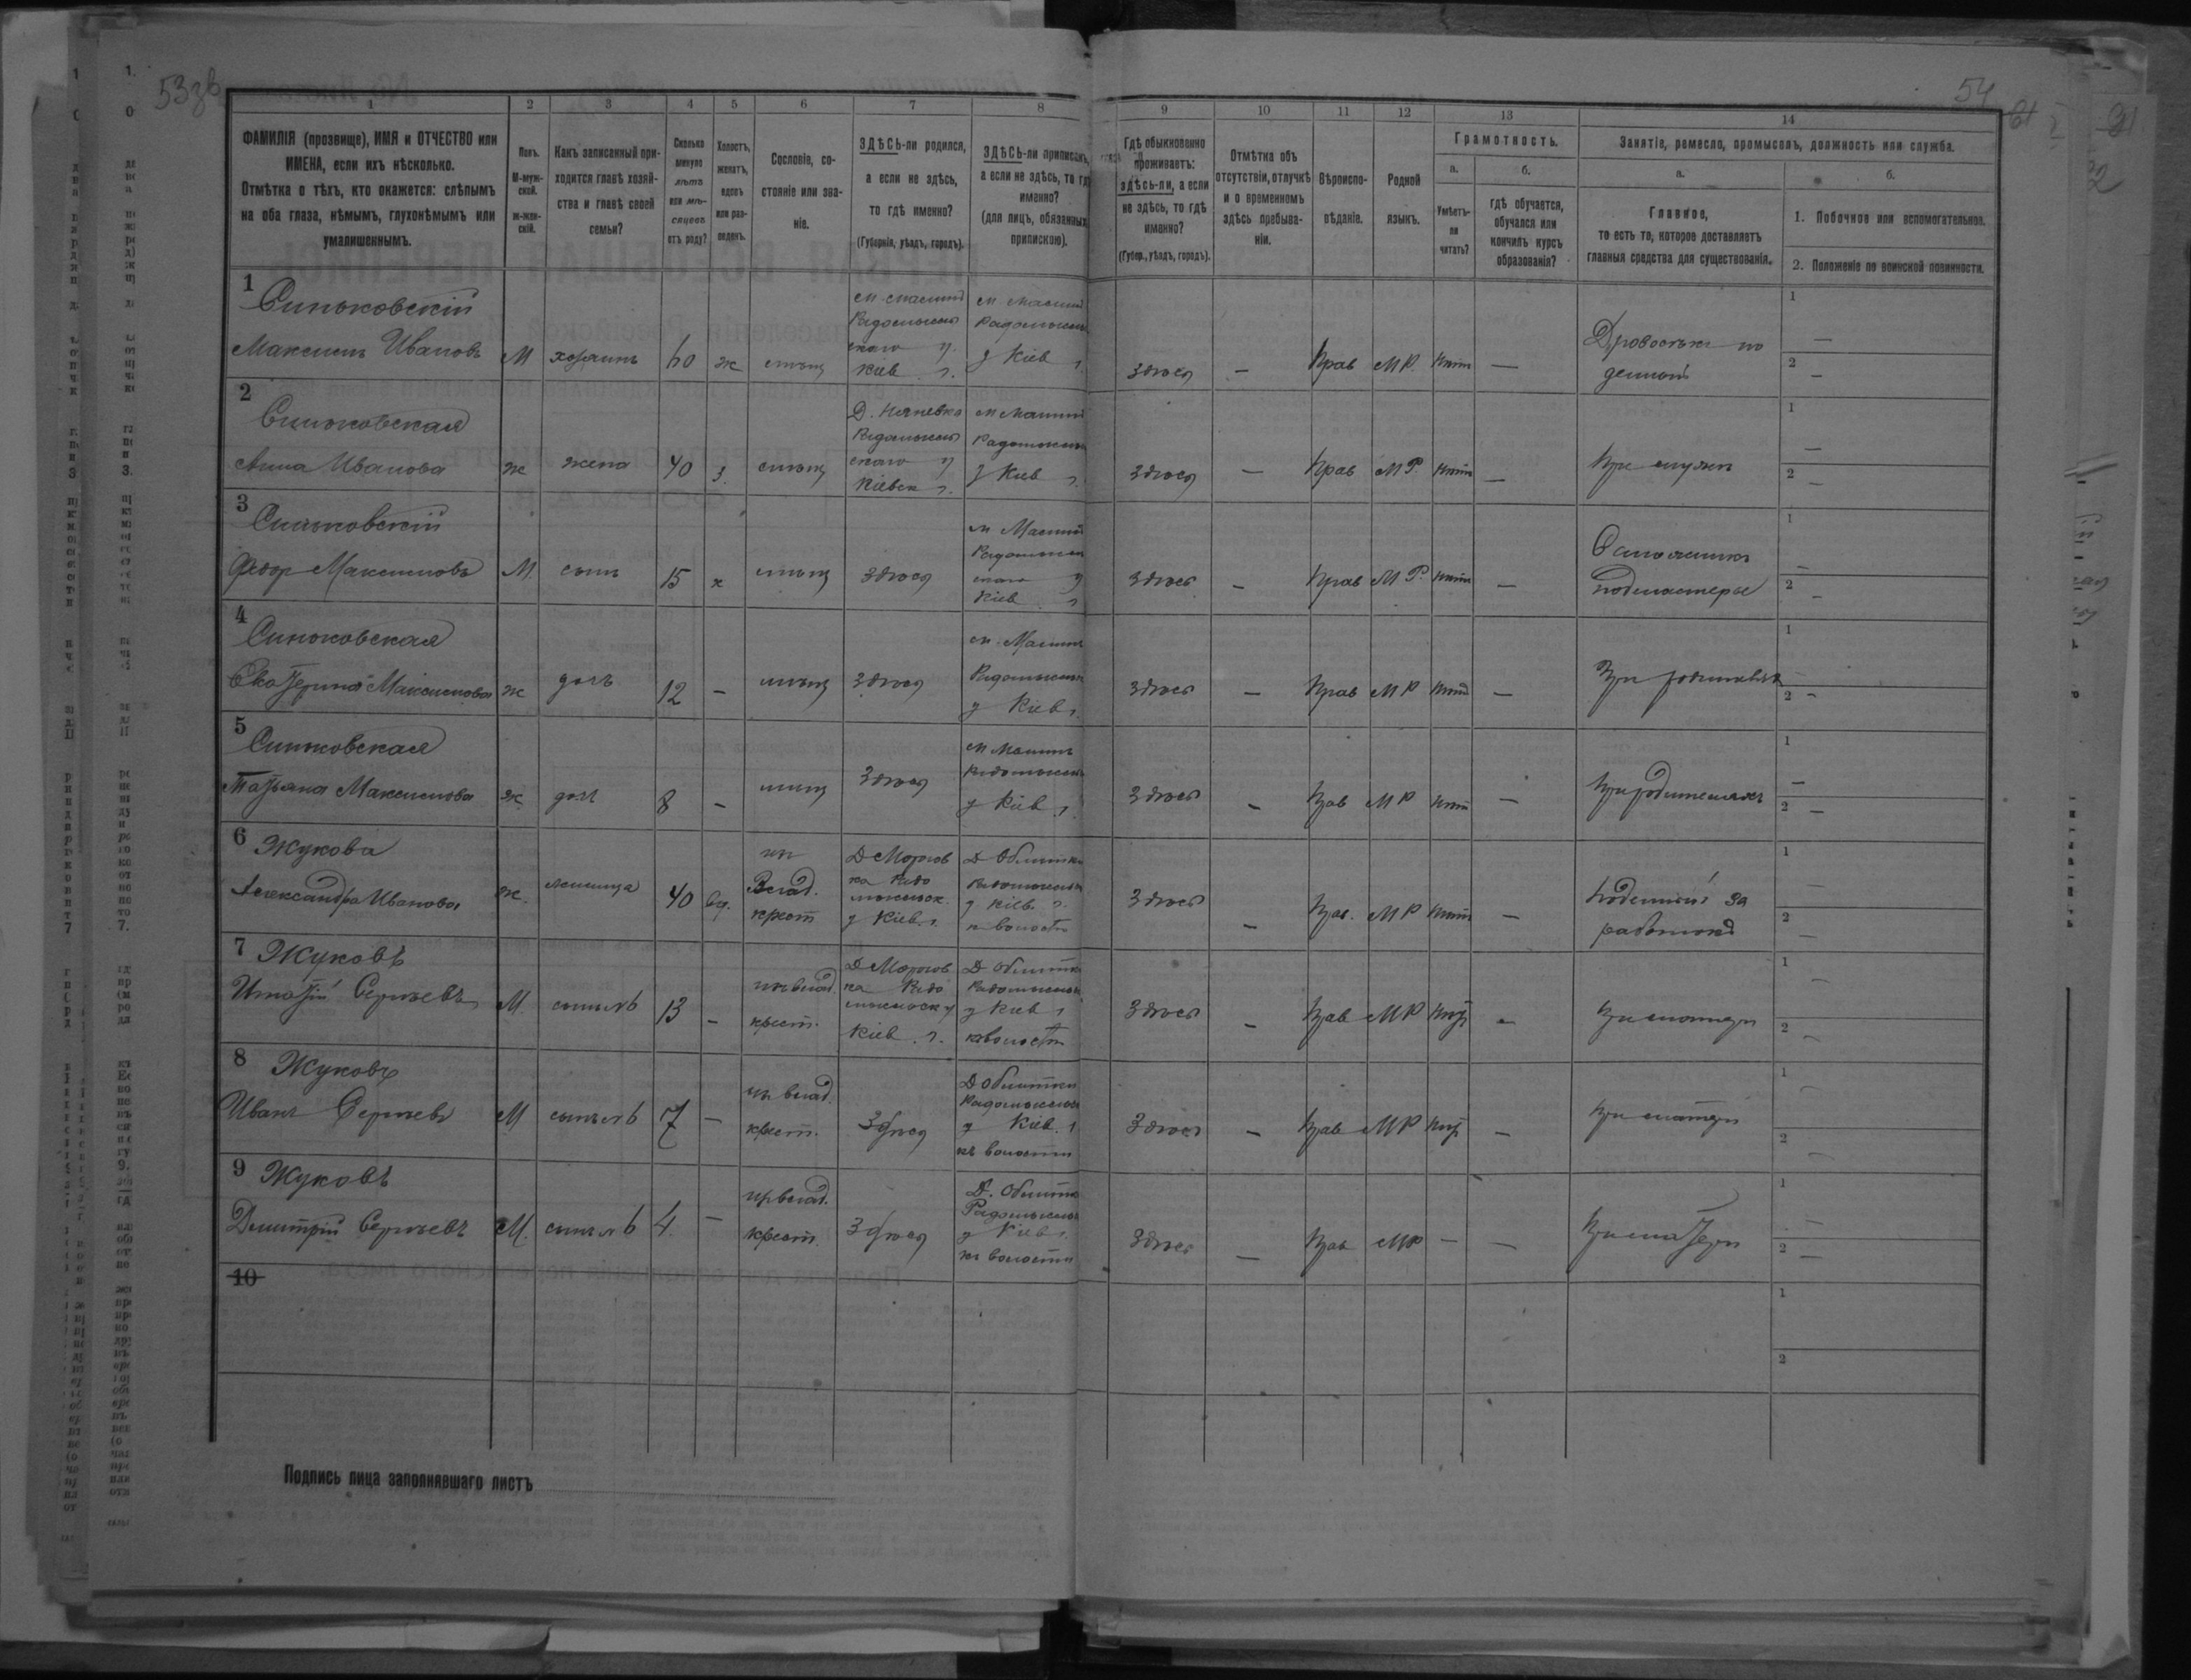 53зв
54
1 2 3 4 5 6 7 8 9 10 11 12 13 14
ФАМИЛІЯ (прозвище), ИМЯ и ОТЧЕСТВО или
ИМЕНА, если ихъ нѣсколько.
Отмѣтка о тѣхъ, кто окажется: слѣпымъ
на оба глаза, нѣмымъ, глухонѣмымъ или
умалишеннымъ.
Полъ.
М-муж-
ской.
ж-жен-
скій.
Какъ записанный при-
ходится главѣ хозяй-
ства и главѣ своей
семьи?
Сколько
минуло
лѣтъ
или мѣ-
сяцевъ
отъ роду?
Холостъ,
женатъ,
вдовъ
или раз-
веденъ.
Сословіе, со-
стояніе или зва-
ніе.
ЗДѢСЬ-ли родился,
а если не здѣсь,
то гдѣ именно?
(Губернія, уѣздъ, городъ).
ЗДѢСЬ-ли приписанъ,
а если не здѣсь, то гдѣ
именно?
(для лицъ, обязанныхъ
припискою).
Гдѣ обыкновенно
проживаетъ:
здѣсь-ли, а если
не здѣсь, то гдѣ
именно?
(Губер., уѣздъ, городъ).
Отмѣтка объ
отсутствіи, отлучкѣ
и о временномъ
здѣсь пребыва-
ніи.
Вѣроиспо-
вѣданіе.
Родной
языкъ.
Грамотность.
а.
Умѣетъ-
ли
читать?
б.
гдѣ обучается,
обучался или
кончилъ курсъ
образованія?
Занятіе, ремесло, промыселъ, должность или служба.
а.
Главное,
то есть то, которое доставляетъ
главныя средства для существованія.
б.
1. Побочное или вспомогательное.
2. Положеніе по воинской повинности.
1
Синьковскій
Максимъ Ивановъ М хозяинъ 60 ж мѣщ
м. Малинъ
Радомысль
скаго у.
Кіев г.
м Малинъ
Радомысль
у Кіев г.
здѣсь — Прав М Р. нѣтъ —
Дровосѣкъ по
денный
1 —
2 —
2
Синьковская
Анна Иванова ж жена 40 з. мѣщ
Радомысль
скаго у
Кіевск г.
м Малинъ
Радомысль
у Кіев г.
здѣсь — Прав М Р. нѣтъ —
При мужѣ
1 —
2 —
3
Синьковскій
Федор Максимовъ М. сынъ 15 х мѣщ здѣся
м Малинъ
Радомысль
скаго у
Кіев г
здѣсь — Прав М Р. нѣтъ —
Сапожникъ
подмастерье
1 —
2 —
4
Синьковская
Екатерина Максимова ж доч 12 — мѣщ здѣся
м. Малинъ
Радомысль
у Кіев г.
здѣсь — Прав М Р нѣтъ —
При родителях
1 —
2 —
5
Синьковская
Татьяна Максимова ж доч 8 — мѣщ здѣся
м Малинъ
Радомысль
у Кіев г.
здѣсь — Прав М Р нѣтъ —
При родителяхъ
1 —
2 —
6 Жукова
Александра Иванова ж. жилица 40 вд.
из
Влад.
крест
Д
ка Радо
мысльск.
у Кіев. г.
Д
Радомысль
у Кіев. г.
волости
здѣсь — Прав. М Р нѣтъ —
Поденный за
работок
1 —
2 —
7 Жуковъ
Игнатій Сергѣевъ М. сынъ №6 13 —
из влад.
крест.
Д
ка Радо
мысльск у
Кіев. г.
Д
Радомысль
у Кіев г
волости
здѣсь — Прав М Р нѣт —
при матери
1 —
2 —
8 Жуковъ
Иванъ Сергѣевъ М сынъ №6 7 —
из влад.
крест.
здѣся
Д
Радомысль
у Кіев. г
волости
здѣсь — Прав М Р нѣт —
при матери
1 —
2 —
9 Жуковъ
Дмитрій Сергѣевъ М. сынъ №6 4 —
из влад.
крест.
здѣся
Д.
Радомысль
у Кіев г.
волости
здѣсь — Прав М Р — —
При матери
1 —
2 —
10
1
2
Подпись лица заполнявшаго листъ